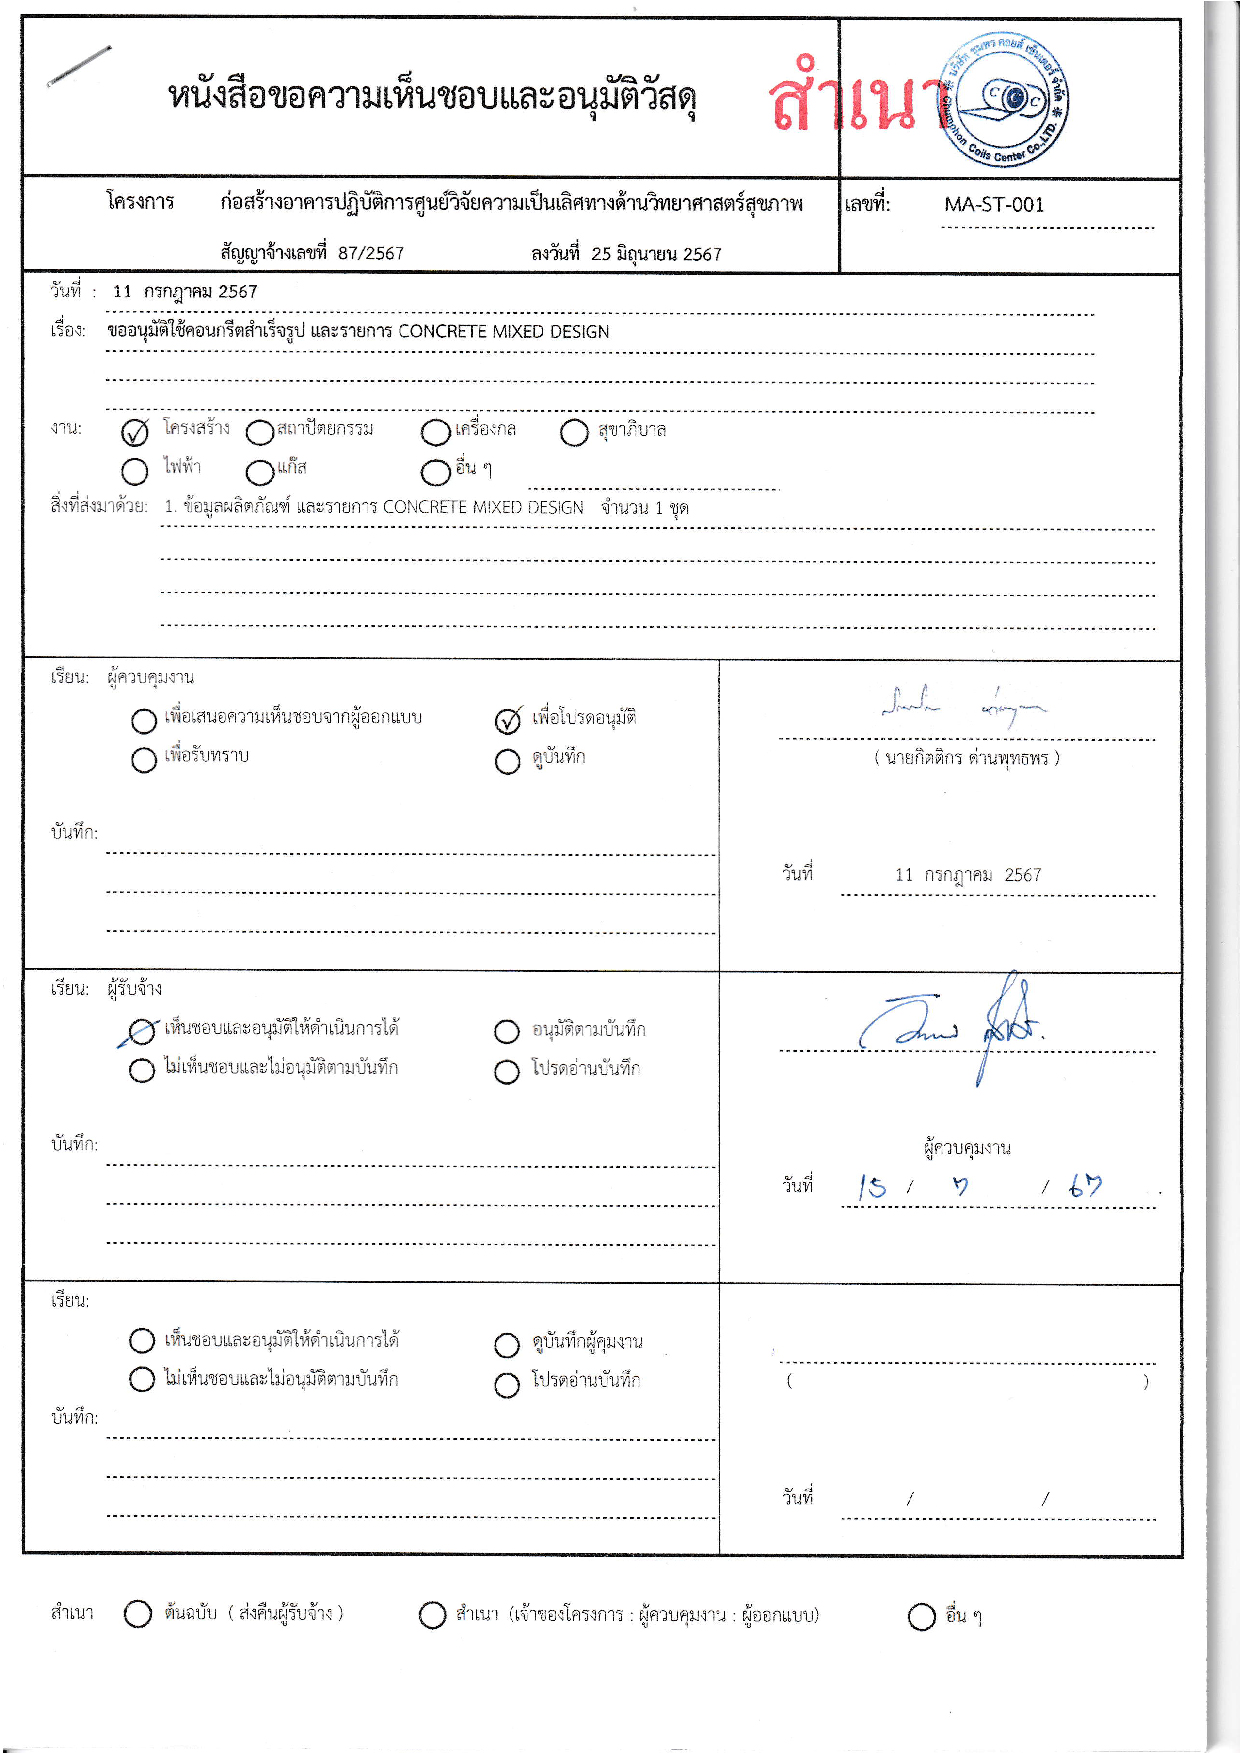 หนังสือขอความเห็นชอบและอนุมัติวัสดุ
สำเนา
บริษัท ชุมพร คอยล์ เซ็นเตอร์ จำกัด
CCC
Chumphon Coils Center Co.,LTD.
โครงการ ก่อสร้างอาคารปฏิบัติการศูนย์วิจัยความเป็นเลิศทางด้านวิทยาศาสตร์สุขภาพ เลขที่: MA-ST-001
สัญญาจ้างเลขที่ 87/2567 ลงวันที่ 25 มิถุนายน 2567
วันที่ : 11 กรกฎาคม 2567
เรื่อง: ขออนุมัติใช้คอนกรีตสำเร็จรูป และรายการ CONCRETE MIXED DESIGN
งาน: โครงสร้าง สถาปัตยกรรม เครื่องกล สุขาภิบาล
ไฟฟ้า แก๊ส อื่น ๆ
สิ่งที่ส่งมาด้วย: 1. ข้อมูลผลิตภัณฑ์ และรายการ CONCRETE MIXED DESIGN จำนวน 1 ชุด
เรียน: ผู้ควบคุมงาน
เพื่อเสนอความเห็นชอบจากผู้ออกแบบ เพื่อโปรดอนุมัติ
เพื่อรับทราบ ดูบันทึก
( นายกิตติกร ด่านพุทธพร )
บันทึก:
วันที่ 11 กรกฎาคม 2567
เรียน: ผู้รับจ้าง
เห็นชอบและอนุมัติให้ดำเนินการได้ อนุมัติตามบันทึก
ไม่เห็นชอบและไม่อนุมัติตามบันทึก โปรดอ่านบันทึก
บันทึก:
ผู้ควบคุมงาน
วันที่ 15 / 7 / 67
เรียน:
เห็นชอบและอนุมัติให้ดำเนินการได้ ดูบันทึกผู้คุมงาน
ไม่เห็นชอบและไม่อนุมัติตามบันทึก โปรดอ่านบันทึก
( )
บันทึก:
วันที่ / /
สำเนา ต้นฉบับ ( ส่งคืนผู้รับจ้าง ) สำเนา (เจ้าของโครงการ : ผู้ควบคุมงาน : ผู้ออกแบบ) อื่น ๆ